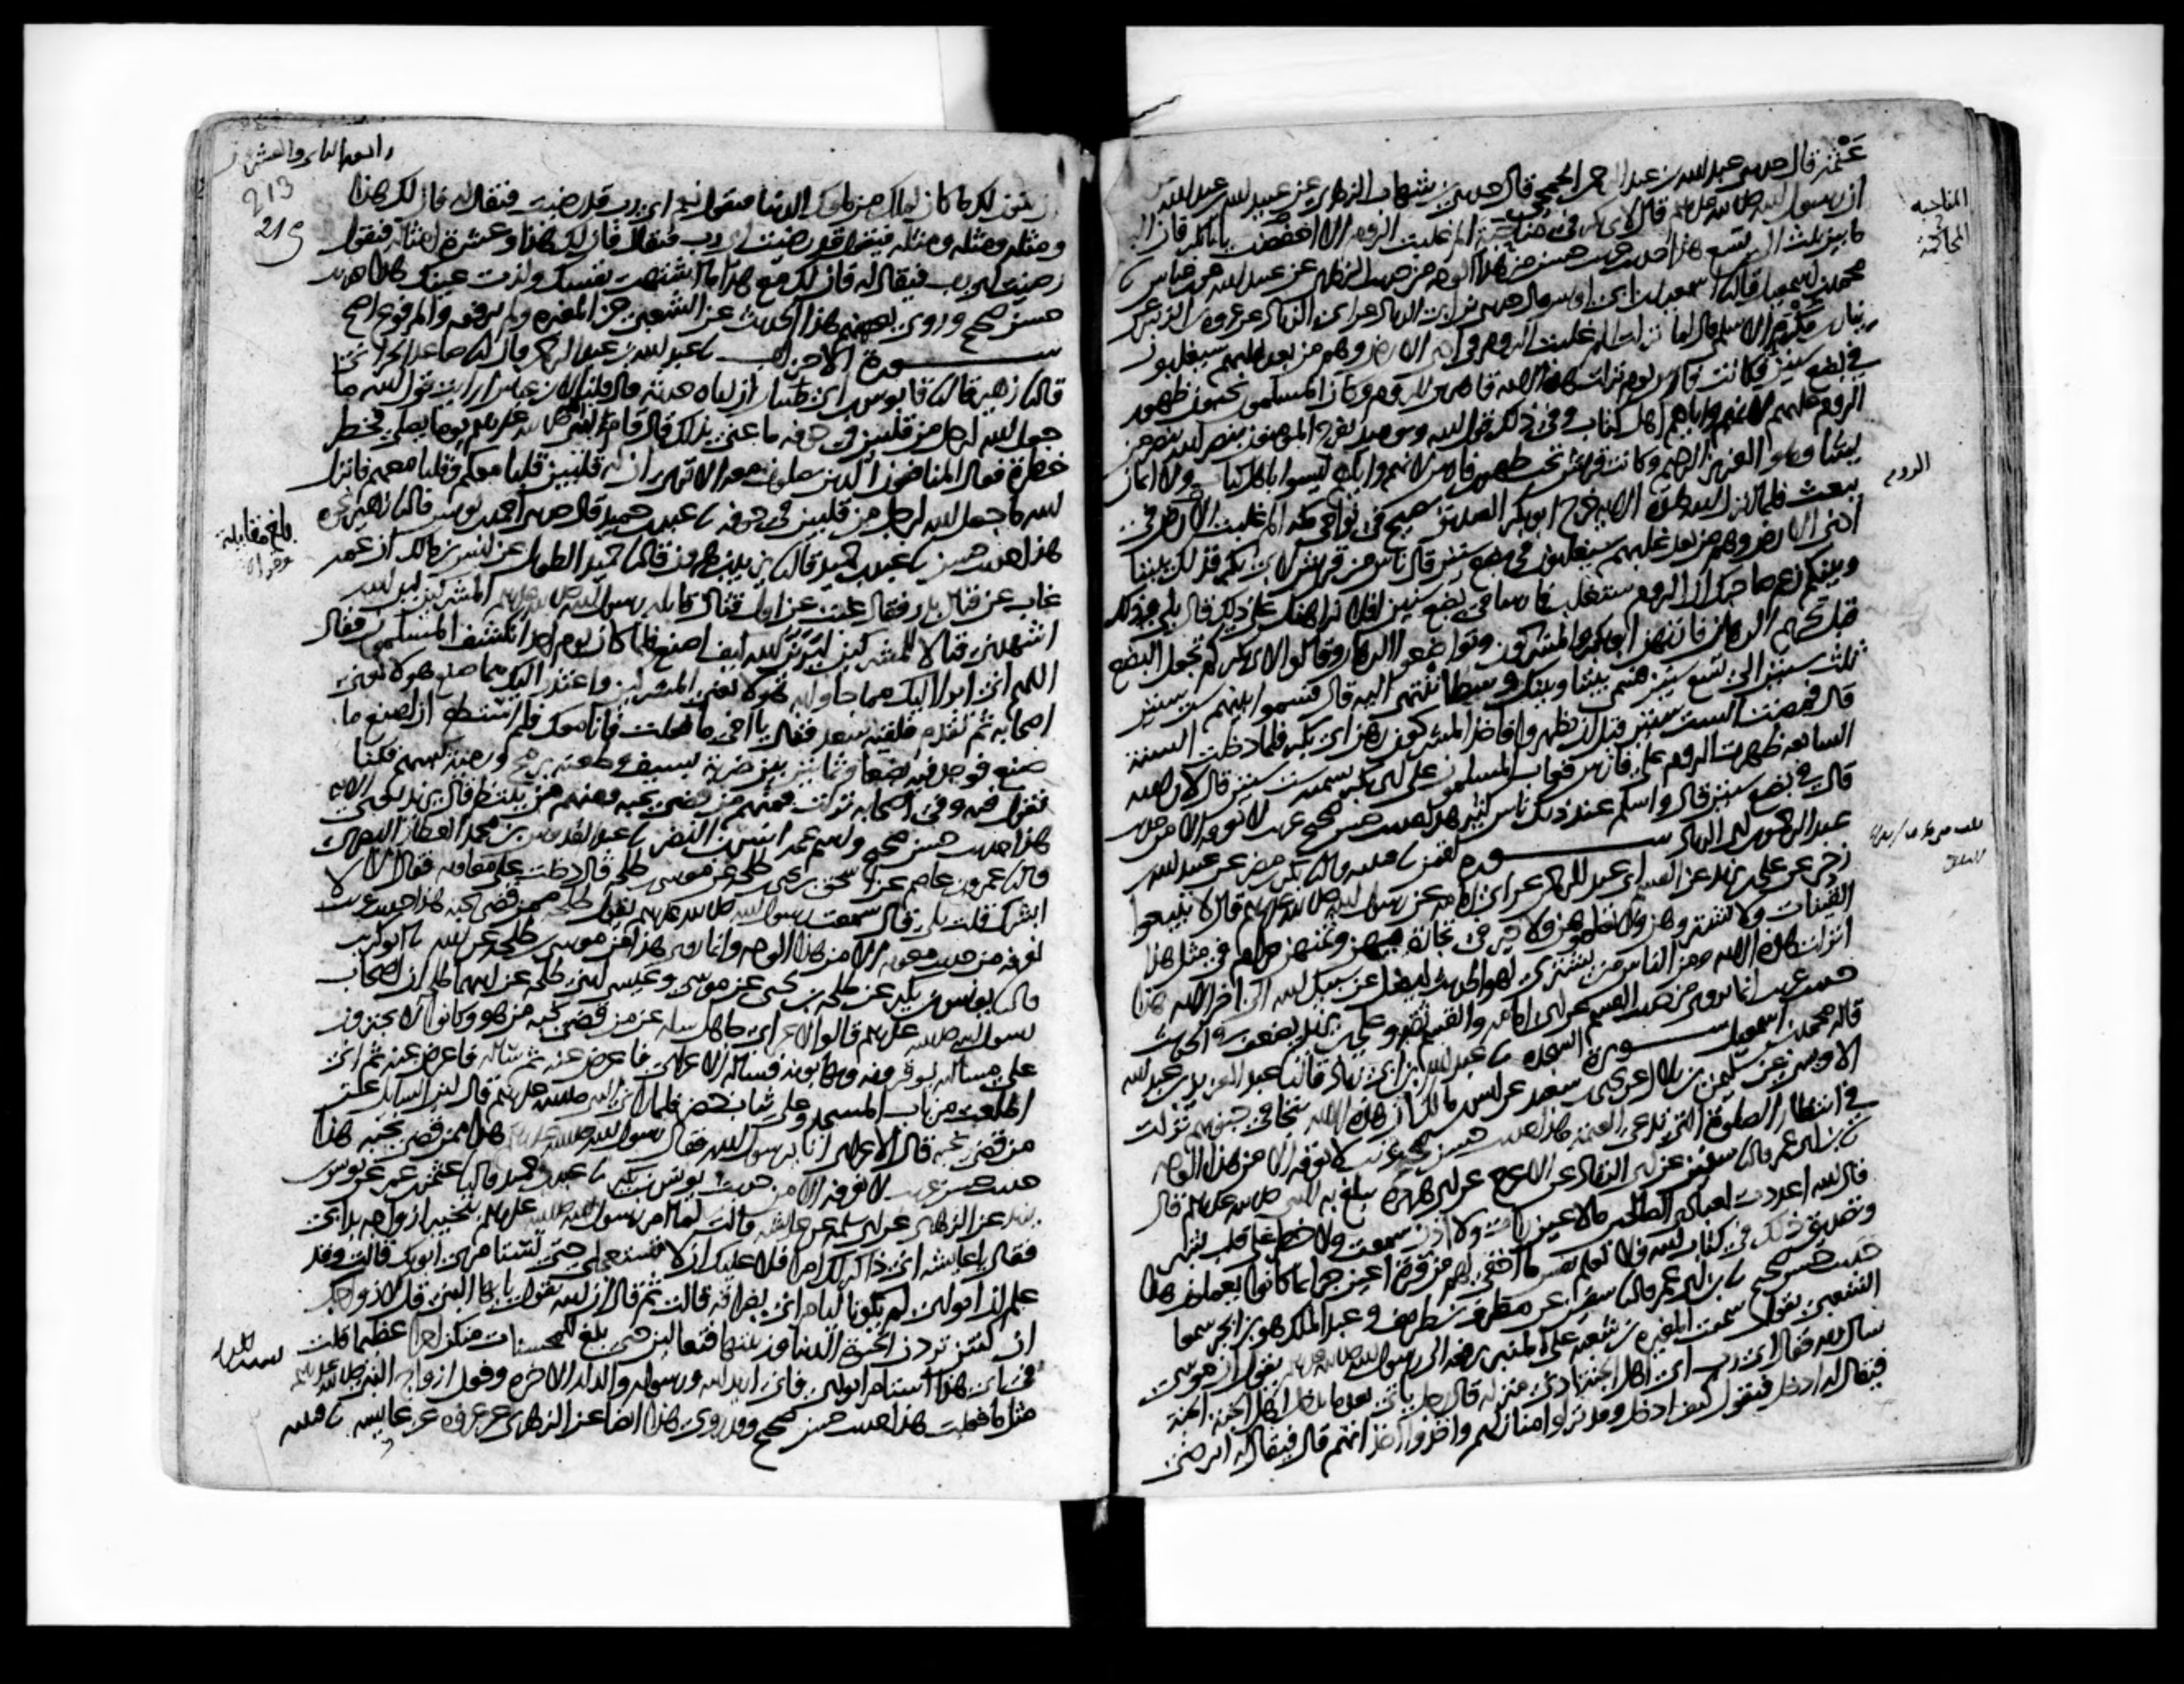 عثمة قال حدثني عبد الله بن عبد الرحمن الجمحي قال حدثني ابن شهاب الزهري عن عبيد الله بن عبد الله
ان رسول الله صلى الله عليه وسلم قال لابي بكر في مناحبة الم غلبت الروم الا اخفضت يا ابا بكر فان
ما بين ثلث الى تسع هذا حديث حسن من هذا الوجه من حديث الزهري عن عبيد الله عن ابن عباس
محمد بن اسمعيل قال اسمعيل بن ابي اويس قال حدثني ابن ابي الزناد عن ابي الزناد عن عروة بن الزبير عن
نيار بن مكرم الاسلمي قال لما نزلت الم غلبت الروم في ادنى الارض وهم من بعد غلبهم سيغلبون
في بضع سنين فكانت فارس يوم نزلت هذه الاية قاهرين للروم وكان المسلمون يحبون ظهور
الروم عليهم لانهم واياهم اهل كتاب وفي ذلك قول الله ويومئذ يفرح المومنون بنصر الله ينصر من
يشاء وهو العزيز الرحيم وكانت قريش تحب ظهور فارس لانهم واياهم ليسوا باهل كتاب ولا ايمان
ببعث فلما انزل الله هذه الاية خرج ابو بكر الصديق يصيح في نواحي مكة الم غلبت الروم في
ادنى الارض وهم من بعد غلبهم سيغلبون في بضع سنين قال ناس من قريش لابي بكر فذلك بيننا
وبينكم زعم صاحبك ان الروم ستغلب فارسا في بضع سنين افلا نراهنك على ذلك قال بلى وذلك
قبل تحريم الرهان فارتهن ابو بكر والمشركون وتواضعوا الرهان وقالوا لابي بكر كم تجعل البضع
ثلث سنين الى تسع سنين فسم بيننا وبينك وسطا تنتهي اليه قال فسموا بينهم ست سنين
قال فمضت الست سنين قبل ان يظهروا فاخذ المشركون رهن ابي بكر فلما دخلت السنة
السابعة ظهرت الروم على فارس فعاب المسلمون على ابي بكر تسمية ست سنين قال لان الله
قال في بضع سنين قال واسلم عند ذلك ناس كثير هذا حديث حسن صحيح غريب لا نعرفه الا من حديث
عبد الرحمن بن ابي الزناد سورة لقمن قتيبة قال بكر بن مضر عن عبيد الله
بن زحر عن علي بن يزيد عن القسم ابي عبد الرحمن عن ابي امامة عن رسول الله صلى الله عليه وسلم قال لا تبيعوا
القينات ولا تشتروهن ولا تعلموهن ولا خير في تجارة فيهن وثمنهن حرام في مثل هذا
انزلت هذه الاية ومن الناس من يشتري لهو الحديث ليضل عن سبيل الله الى اخر الاية هذا
حديث غريب انما يروى من حديث القسم عن ابي امامة والقسم ثقة وعلي بن يزيد يضعف في الحديث
قاله محمد بن اسمعيل سورة السجدة عبد الله بن ابي زياد قال عبد العزيز بن عبد الله
الاويسي عن سليمن بن بلال عن يحيى بن سعيد عن انس بن مالك ان هذه الاية تتجافى جنوبهم نزلت
في انتظار الصلوة التي تدعى العتمة هذا حديث حسن صحيح غريب لا نعرفه الا من هذا الوجه
ابن ابي عمر قال سفين عن ابي الزناد عن الاعرج عن ابي هريرة يبلغ به النبي صلى الله عليه وسلم قال
قال الله اعددت لعبادي الصالحين ما لا عين رات ولا اذن سمعت ولا خطر على قلب بشر
وتصديق ذلك في كتاب الله فلا تعلم نفس ما اخفي لهم من قرة اعين جزاء بما كانوا يعملون هذا
حديث حسن صحيح ابن ابي عمر قال سفين عن مطرف بن طريف وعبد الملك هو ابن ابجر سمعا
الشعبي يقول سمعت المغيرة بن شعبة على المنبر يرفعه الى رسول الله صلى الله عليه وسلم يقول ان موسى
سال ربه فقال اي رب اي اهل الجنة ادنى منزلة قال رجل ياتي بعدما يدخل اهل الجنة الجنة
فيقال له ادخل فيقول كيف ادخل وقد نزلوا منازلهم واخذوا اخذاتهم قال فيقال له اترضى
المناحبه
المحاكمة
الروم
213
219
ان يكون لك ما كان لملك من ملوك الدنيا فيقول نعم اي رب قد رضيت فيقال له فان لك هذا
ومثله ومثله ومثله فيقول قد رضيت اي رب فيقال فان لك هذا وعشرة امثاله فيقول
رضيت اي رب فيقال له فان لك مع هذا ما اشتهت نفسك ولذت عينك هذا حديث
حسن صحيح وروى بعضهم هذا الحديث عن الشعبي عن المغيرة ولم يرفعه والمرفوع اصح
سورة الاحزاب عبد الله بن عبد الرحمن قال صاعد الحراني
قال زهير قال قابوس بن ابي ظبيان ان اباه حدثه قال قلنا لابن عباس ارايت قول الله ما
جعل الله لرجل من قلبين في جوفه ما عنى بذلك قال قام النبي صلى الله عليه وسلم يوما يصلي فخطر
خطرة فقال المنافقون الذين يصلون معه الا ترى ان له قلبين قلبا معكم وقلبا معهم فانزل
الله ما جعل الله لرجل من قلبين في جوفه عبد بن حميد قال حدثني احمد بن يونس قال زهير نحوه
هذا حديث حسن عبد بن حميد قال يزيد بن هرون قال حميد الطويل عن انس بن مالك ان عمه
غاب عن قتال بدر فقال غبت عن اول قتال قاتله رسول الله صلى الله عليه وسلم المشركين لئن الله
اشهدني قتالا للمشركين ليرين الله كيف اصنع فلما كان يوم احد انكشف المسلمون فقال
اللهم اني ابرا اليك مما جاوا به هولاء يعني المشركين واعتذر اليك مما صنع هولاء يعني
اصحابه ثم تقدم فلقيه سعد فقال يا اخي ما فعلت فانا معك فلم استطع ان اصنع ما
صنع فوجد فيه بضعا وثمانين بين ضربة بسيف وطعنة برمح ورمية بسهم فكنا
نقول فيه وفي اصحابه نزلت فمنهم من قضى نحبه ومنهم من ينتظر قال يزيد يعني الاية
هذا حديث حسن صحيح واسم عمه انس بن النضر عبد القدوس بن محمد العطار البصري
قال عمرو بن عاصم عن اسحق بن يحيى بن طلحة عن موسى بن طلحة قال دخلت على معاوية فقال الا
ابشرك قلت بلى قال سمعت رسول الله صلى الله عليه وسلم يقول طلحة ممن قضى نحبه هذا حديث غريب
لا نعرفه من حديث معوية الا من هذا الوجه وانما روي هذا عن موسى بن طلحة عن ابيه ابو كريب
قال يونس بن بكير عن طلحة بن يحيى عن موسى وعيسى ابني طلحة عن ابيهما طلحة ان اصحاب
رسول الله صلى الله عليه وسلم قالوا لاعرابي جاهل سله عن من قضى نحبه من هو وكانوا لا يجترون
على مسالته يوقرونه ويهابونه فساله الاعرابي فاعرض عنه ثم ساله فاعرض عنه ثم اني
اطلعت من باب المسجد وعلي ثياب خضر فلما راني النبي صلى الله عليه وسلم قال اين السائل عمن
من قضى نحبه قال الاعرابي انا يا رسول الله فقال رسول الله صلى الله عليه وسلم هذا ممن قضى نحبه هذا
حديث حسن غريب لا نعرفه الا من حديث يونس بن بكير عبد بن حميد قال عثمن بن عمر عن يونس
بن يزيد عن الزهري عن ابي سلمة عن عائشة قالت لما امر رسول الله صلى الله عليه وسلم بتخيير ازواجه بدا بي
فقال يا عائشة اني ذاكر لك امرا فلا عليك ان لا تستعجلي حتى تستامري ابويك قالت وقد
علم ان ابواي لم يكونا ليامراني بفراقه قالت ثم قال ان الله يقول يا ايها النبي قل لازواجك
ان كنتن تردن الحيوة الدنيا وزينتها فتعالين حتى بلغ للمحسنات منكن اجرا عظيما قلت
في اي هذا استامر ابوي فاني اريد الله ورسوله والدار الاخرة وفعل ازواج النبي صلى الله عليه وسلم
مثل ما فعلت هذا حديث حسن صحيح وقد روي هذا ايضا عن الزهري عن عروة عن عايشة
بلغ مقابلة